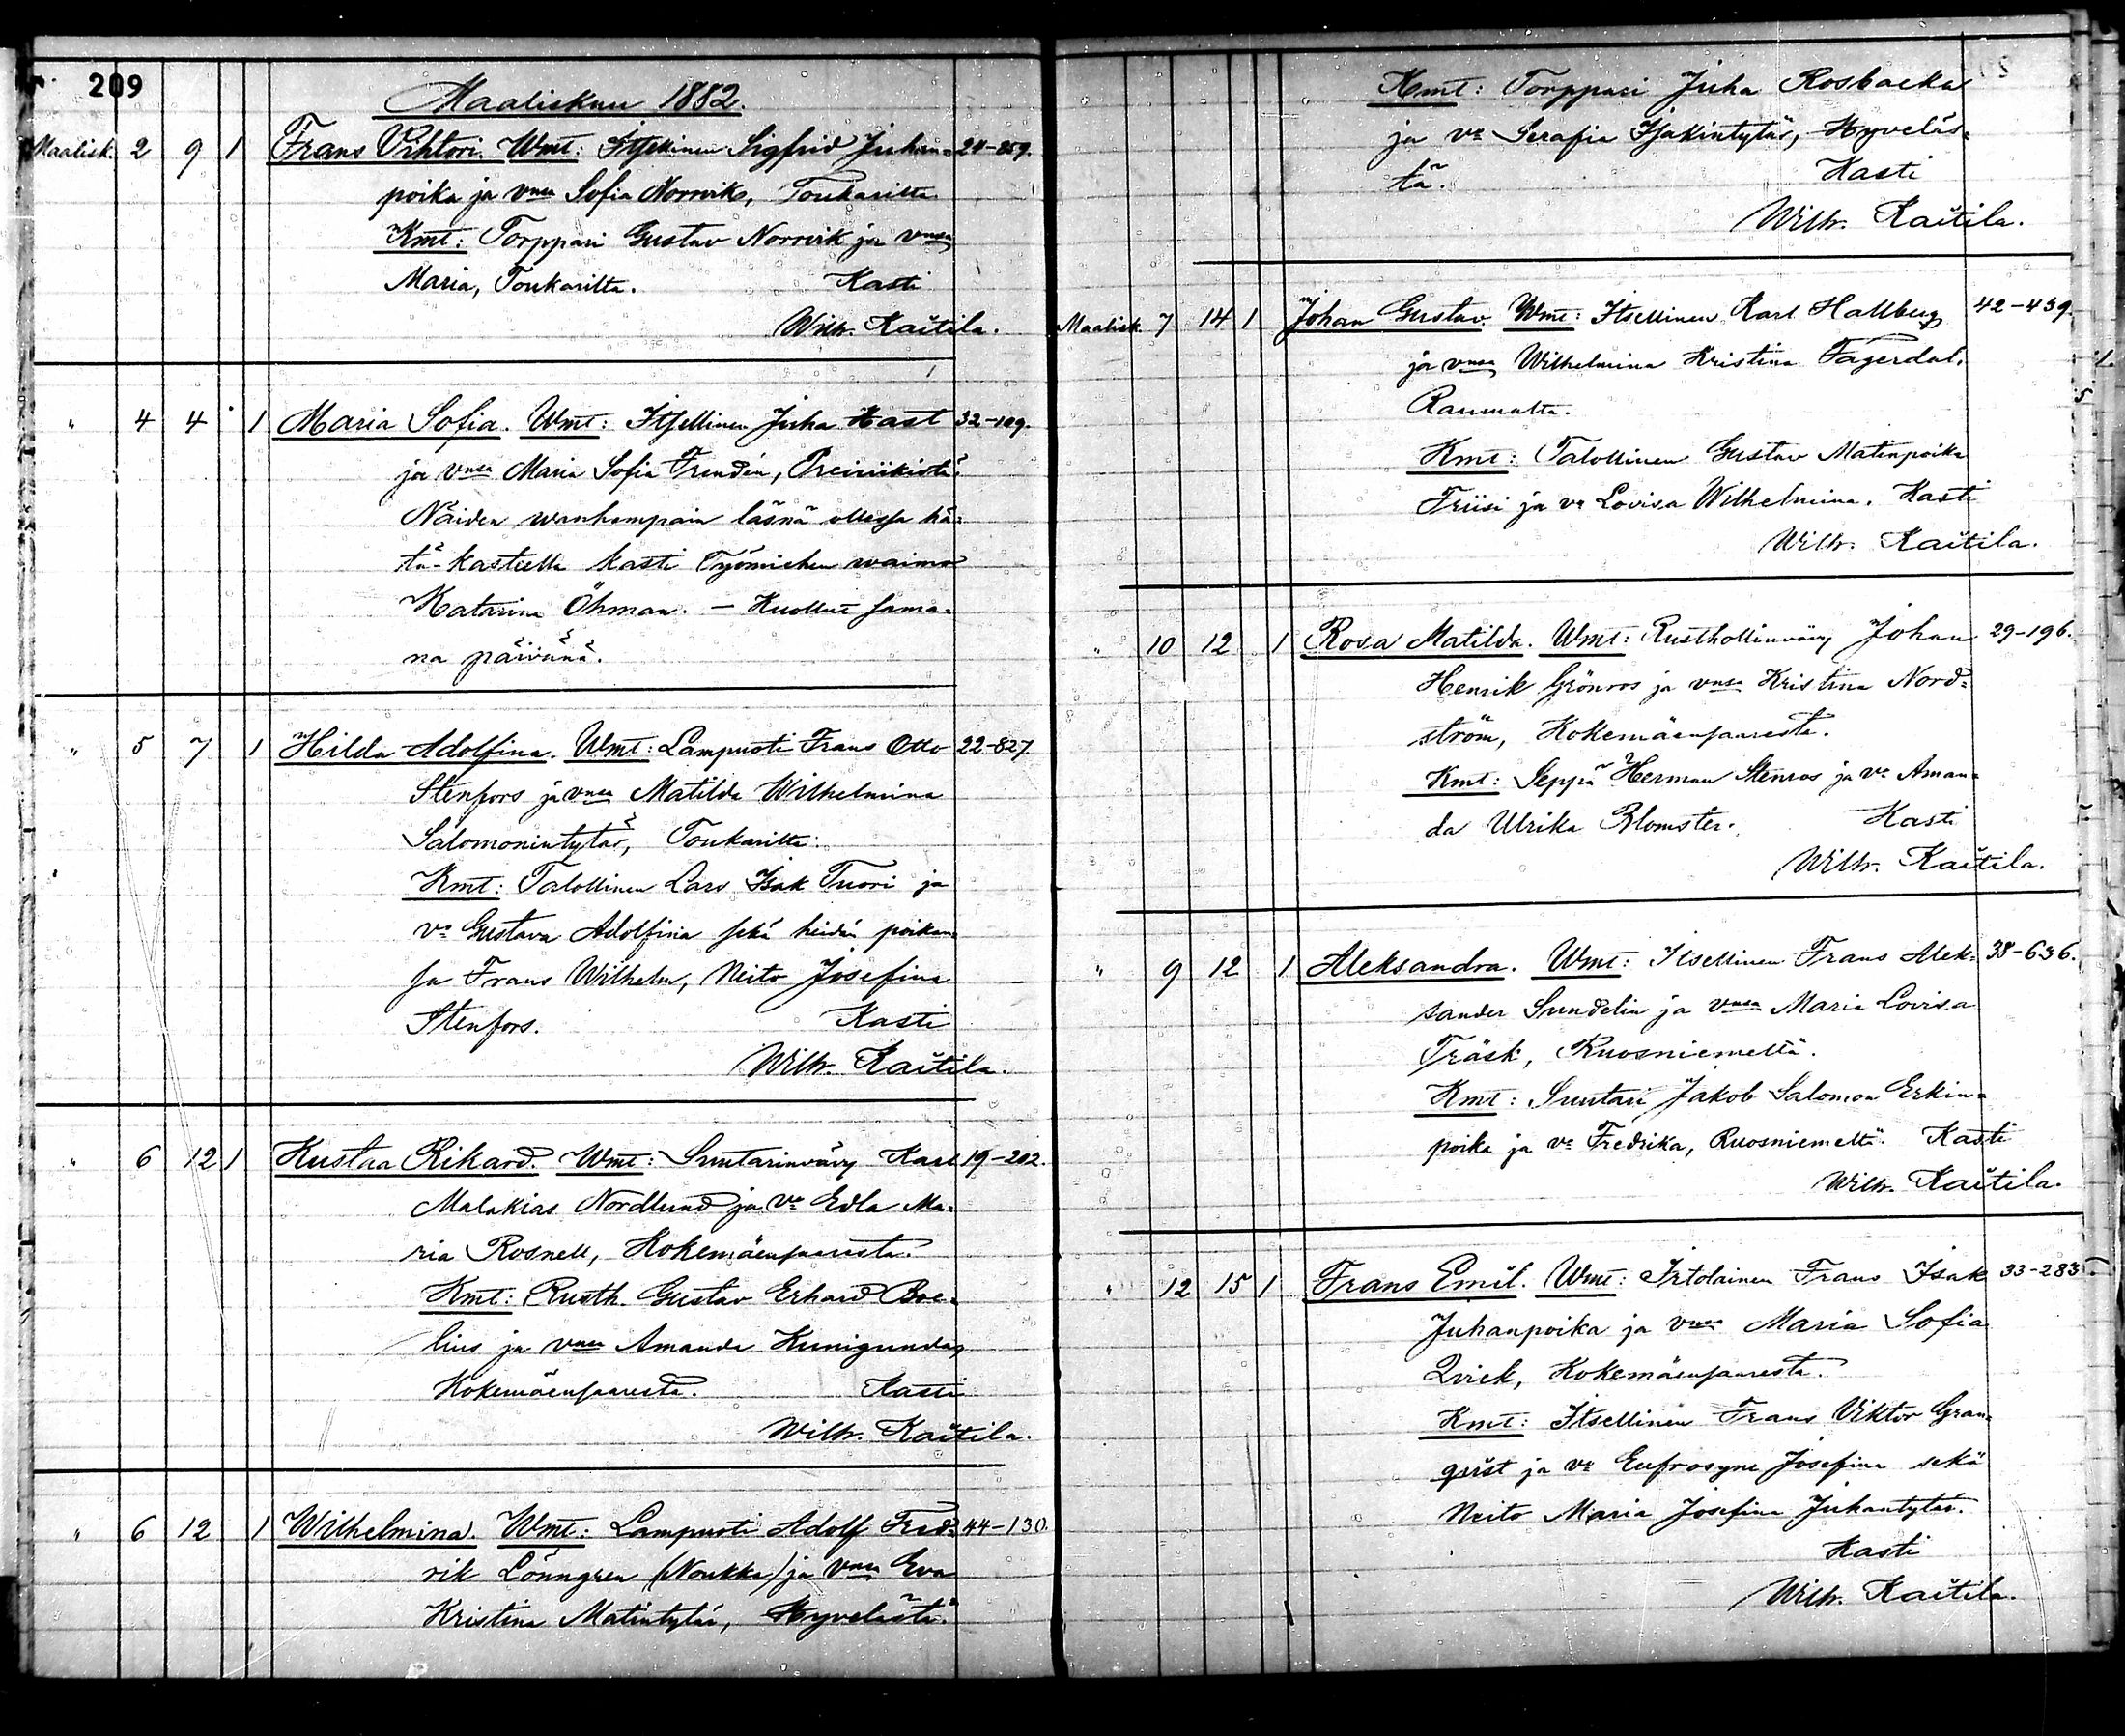 209
Maaliskuu 1882.
Maalisk. 2 9 1 Frans Vihtori. Wmt: Itsellinen Sigfrid Juhan= 24-859.
poika ja vnsa Sofia Norrvik, Toukarilta.
Kmt: Torppari Gustav Norrvik ja vnsa
Maria, Toukarilta. Kasti
Wilh. Kaitila.
" 4 4 1 Maria Sofia. Wmt: Itsellinen Juha Hast 32-109.
ja vnsa Maria Sofia Trendén, Preiviikistä.
Näiden wanhempain läsnä ollessa hä=
tä-kasteella kasti Työmiehen waimo
Katarina Öhman. – Kuollut sama=
na päivänä.
" 5 7 1 Hilda Adolfina. Wmt: Lampuoti Frans Otto 22-827.
Stenfors ja vnsa Matilda Wilhelmina
Salomonintytär, Toukarilta.
Kmt: Talollinen Lars Isak Tuori ja
va Gustava Adolfina sekä heidän poikan=
sa Frans Wilhelm, Neito Josefina
Stenfors. Kasti
Wilh. Kaitila.
" 6 12 1 Kustaa Rikard. Wmt: Suutarinvävy Karl 19-202.
Malakias Nordlund ja va Edla Ma=
ria Rosnell, Kokemäensaaresta.
Kmt: Rusth. Gustav Erhard Boe=
lius ja vnsa Amanda Kunigunda,
Kokemäensaaresta. Kasti
Wilh. Kaitila.
" 6 12 1 Wilhelmina. Wmt: Lampuoti Adolf Fred= 44-130.
rik Lönngren (Noukka) ja vnsa Eva
Kristina Matintytär, Hyvelästä.
Kmt: Torppari Juha Rosbacka
ja va Serafia Isakintytär, Hyveläs=
tä. Kasti
Wilh. Kaitila.
Maalisk. 7 14 1 Johan Gustav. Wmt: Itsellinen Karl Hallberg 42-439.
ja vnsa Wilhelmina Kristina Fagerdal,
Raumalta.
Kmt: Talollinen Gustav Matinpoika
Friisi ja va Lovisa Wilhelmina. Kasti
Wilh. Kaitila.
" 10 12 1 Rosa Matilda. Wmt: Rusthollinvävy Johan 29-196.
Henrik Grönroos ja vnsa Kristina Nord=
ström, Kokemäensaaresta.
Kmt: Seppä Herman Stenroos ja va Aman=
da Ulrika Blomster. Kasti
Wilh. Kaitila.
" 9 12 1 Aleksandra. Wmt: Itsellinen Frans Alek= 38-636.
sander Sundelin ja vnsa Maria Lovisa
Träsk, Ruosniemeltä.
Kmt: Suutari Jakob Salomon Erkin=
poika ja va Fredrika, Ruosniemeltä. Kasti
Wilh. Kaitila.
" 12 15 1 Frans Emil. Wmt: Irtolainen Frans Isak 33-283.
Juhanpoika ja vnsa Maria Sofia
Qvick, Kokemäensaaresta.
Kmt: Itsellinen Frans Viktor Gran=
qvist ja va Eufrosyne Josefina sekä
Neito Maria Josefina Juhantytär.
Kasti
Wilh. Kaitila.